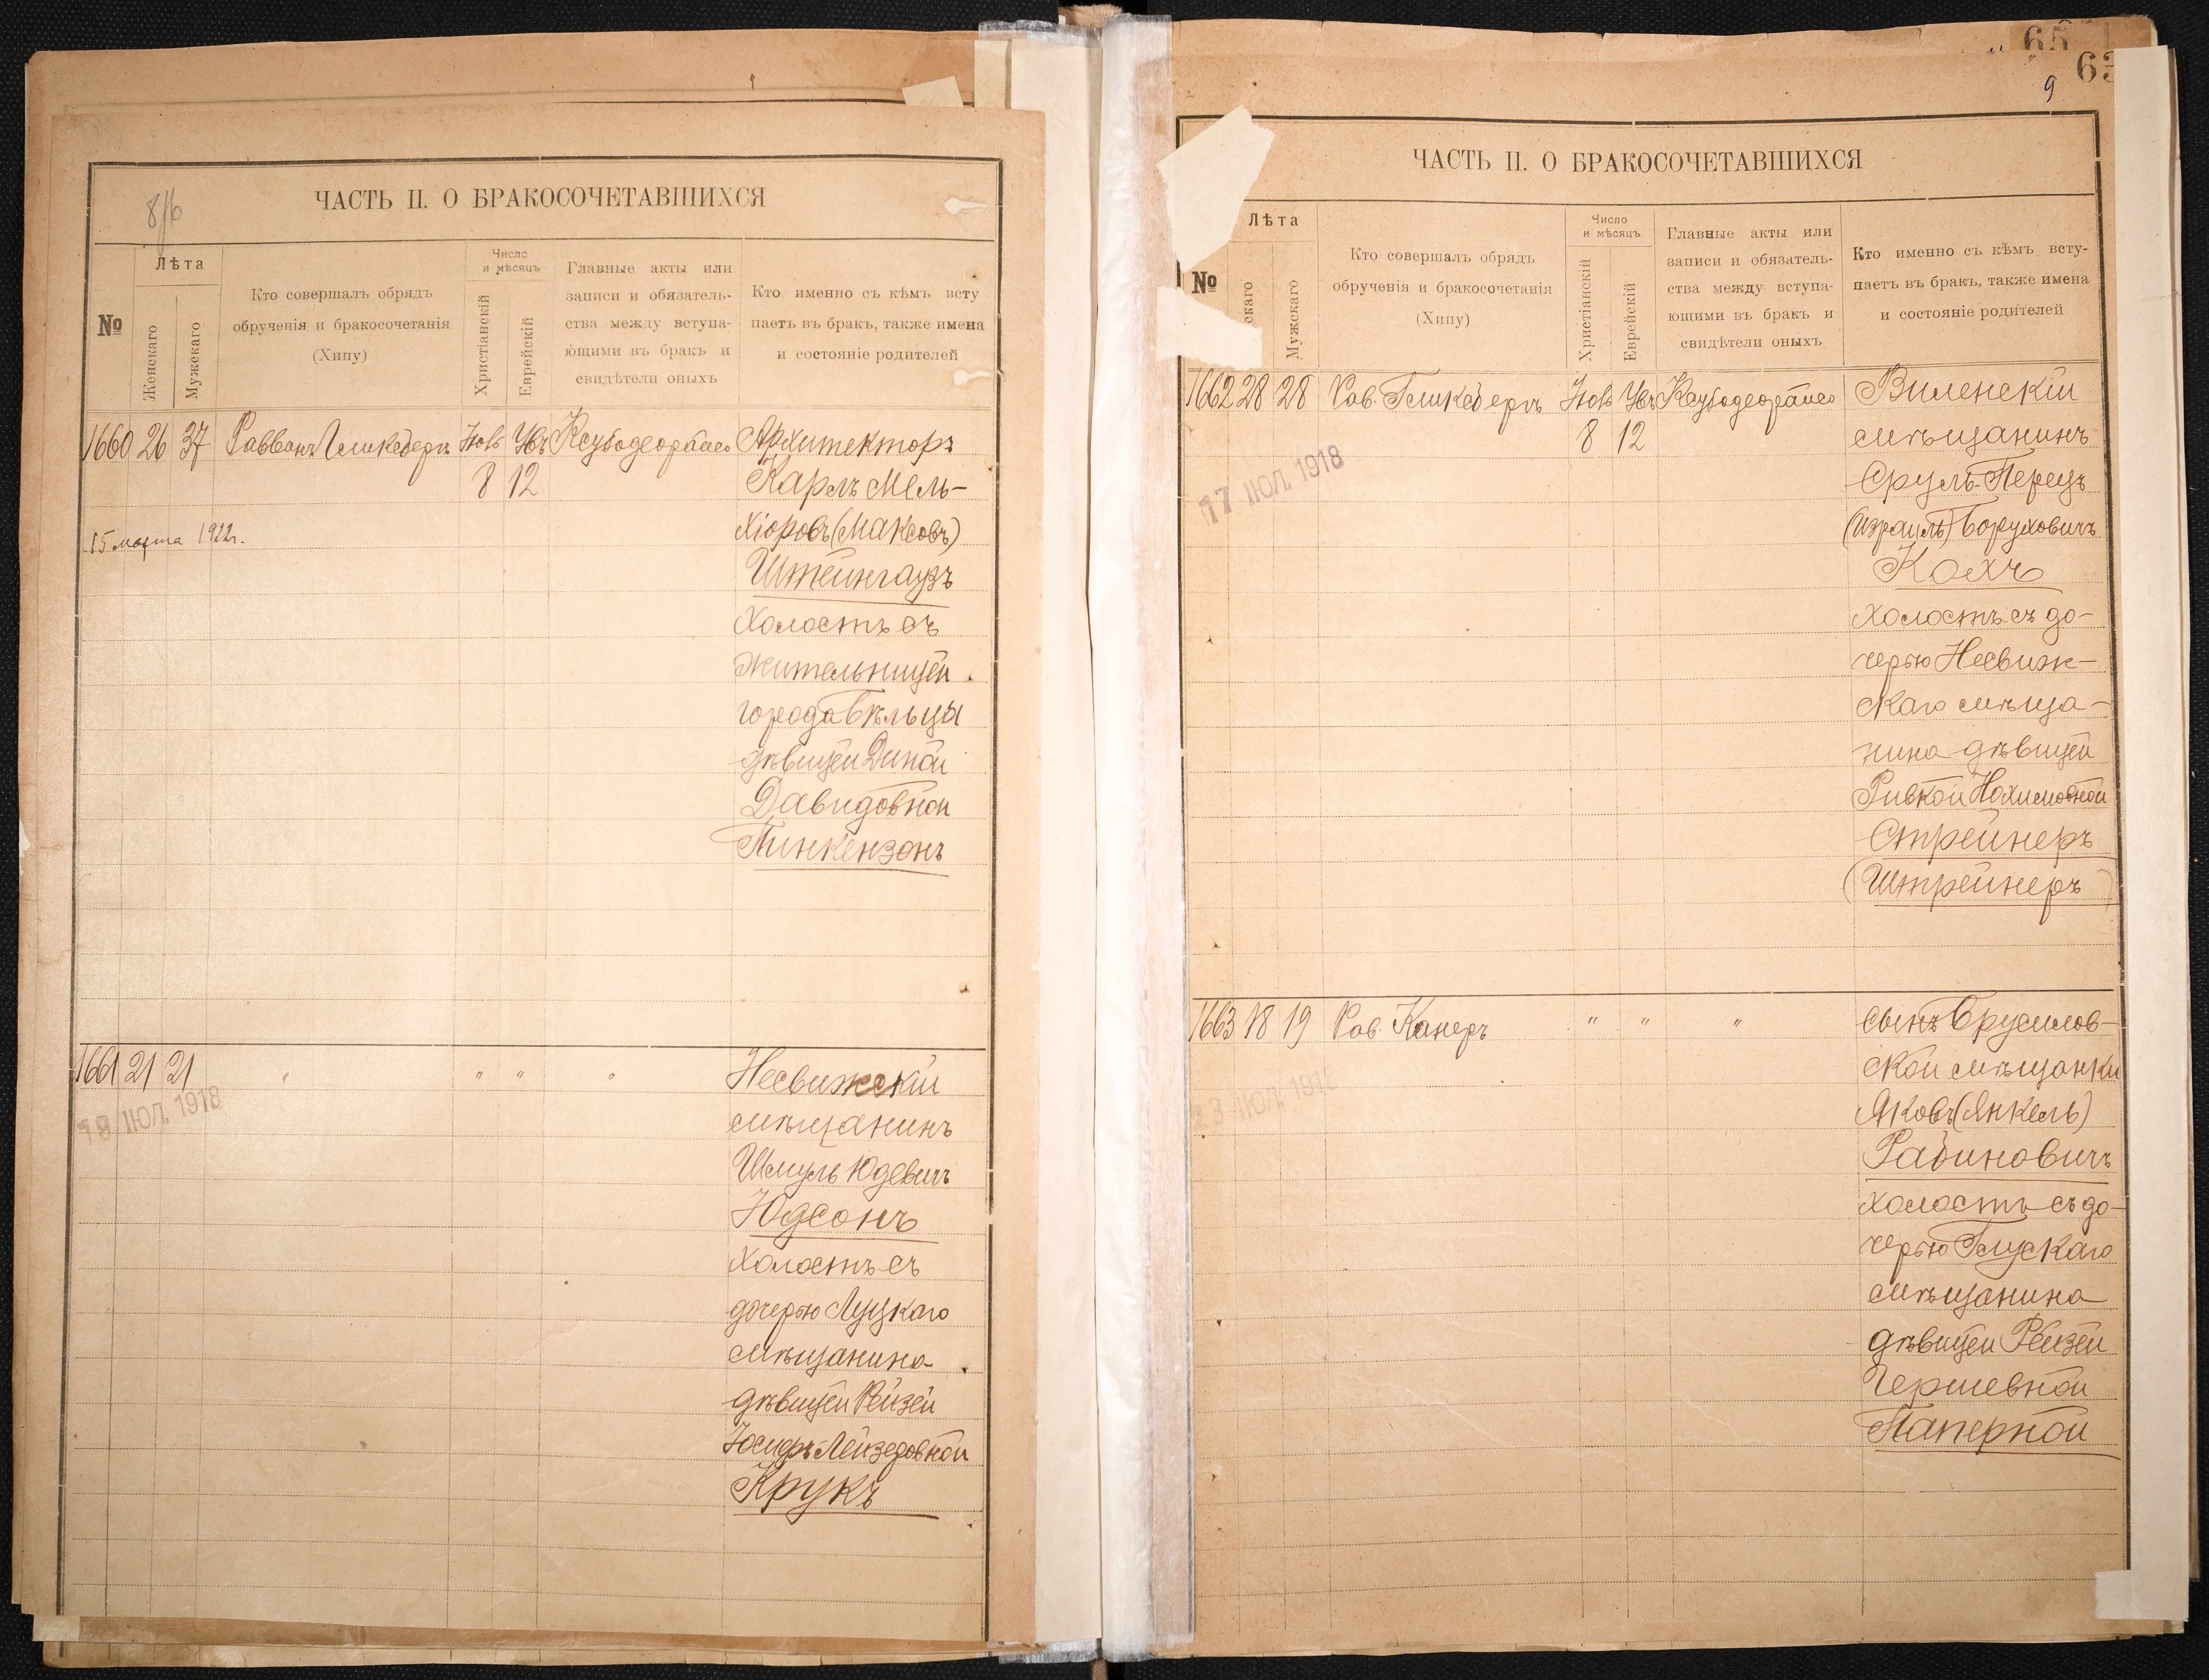 8/16
ЧАСТЬ II. О БРАКОСОЧЕТАВШИХСЯ
№
Лѣта
Женскаго
Мужскаго
Кто совершалъ обрядъ
обрученія и бракосочетанія
(Хипу)
Число
и мѣсяцъ
Христіанскій
Еврейскій
Главные акты или
записи и обязатель-
ства между вступа-
ющими въ бракъ и
свидѣтели оныхъ
Кто именно съ кѣмъ всту
паетъ въ бракъ, также имена
и состояніе родителей
1660 26 37 Раввинъ Гликсбергъ
8 12
Архитекторъ
Карлъ Мель-
хіоровъ (Максовъ)
Штейнгаузъ
холостъ съ
жительницей
города Бѣльцы
дѣвицей Диной
Давидовной
Пинкензонъ
15 марта 1922г.
1661 21 21 " " " "
18 ІЮЛ. 1918
Несвижскій
мѣщанинъ
Шмуль Юдевичъ
Юдсонъ
холостъ съ
дочерью Луцкаго
мѣщанина
дѣвицей Рейзей
Крукъ
65
63
9
ЧАСТЬ II. О БРАКОСОЧЕТАВШИХСЯ
№
Лѣта
скаго
Мужскаго
Кто совершалъ обрядъ
обрученія и бракосочетанія
(Хипу)
Число
и мѣсяцъ
Христіанскій
Еврейскій
Главные акты или
записи и обязатель-
ства между вступа-
ющими въ бракъ и
свидѣтели оныхъ
Кто именно съ кѣмъ всту-
паетъ въ бракъ, также имена
и состояніе родителей
1662 28 28 Рав. Гликсбергъ
8 12
17 ІЮЛ. 1918
Виленскій
мѣщанинъ
Сруль-Перецъ
(Израиль) Боруховичъ
Кохъ
холостъ съ до-
черью Несвиж-
скаго мѣща-
нина дѣвицей
Ривкой Нохимовной
Стрейнеръ
(Штрейнеръ)
1663 18 19 Рав. Канеръ " " "
23 ІЮЛ. 1918
сынъ Брусилов-
ской мѣщанки
Яковъ (Янкель)
Рабиновичъ
холостъ съ до-
черью Глускаго
мѣщанина
дѣвицей Рейзей
Гершевной
Паперной